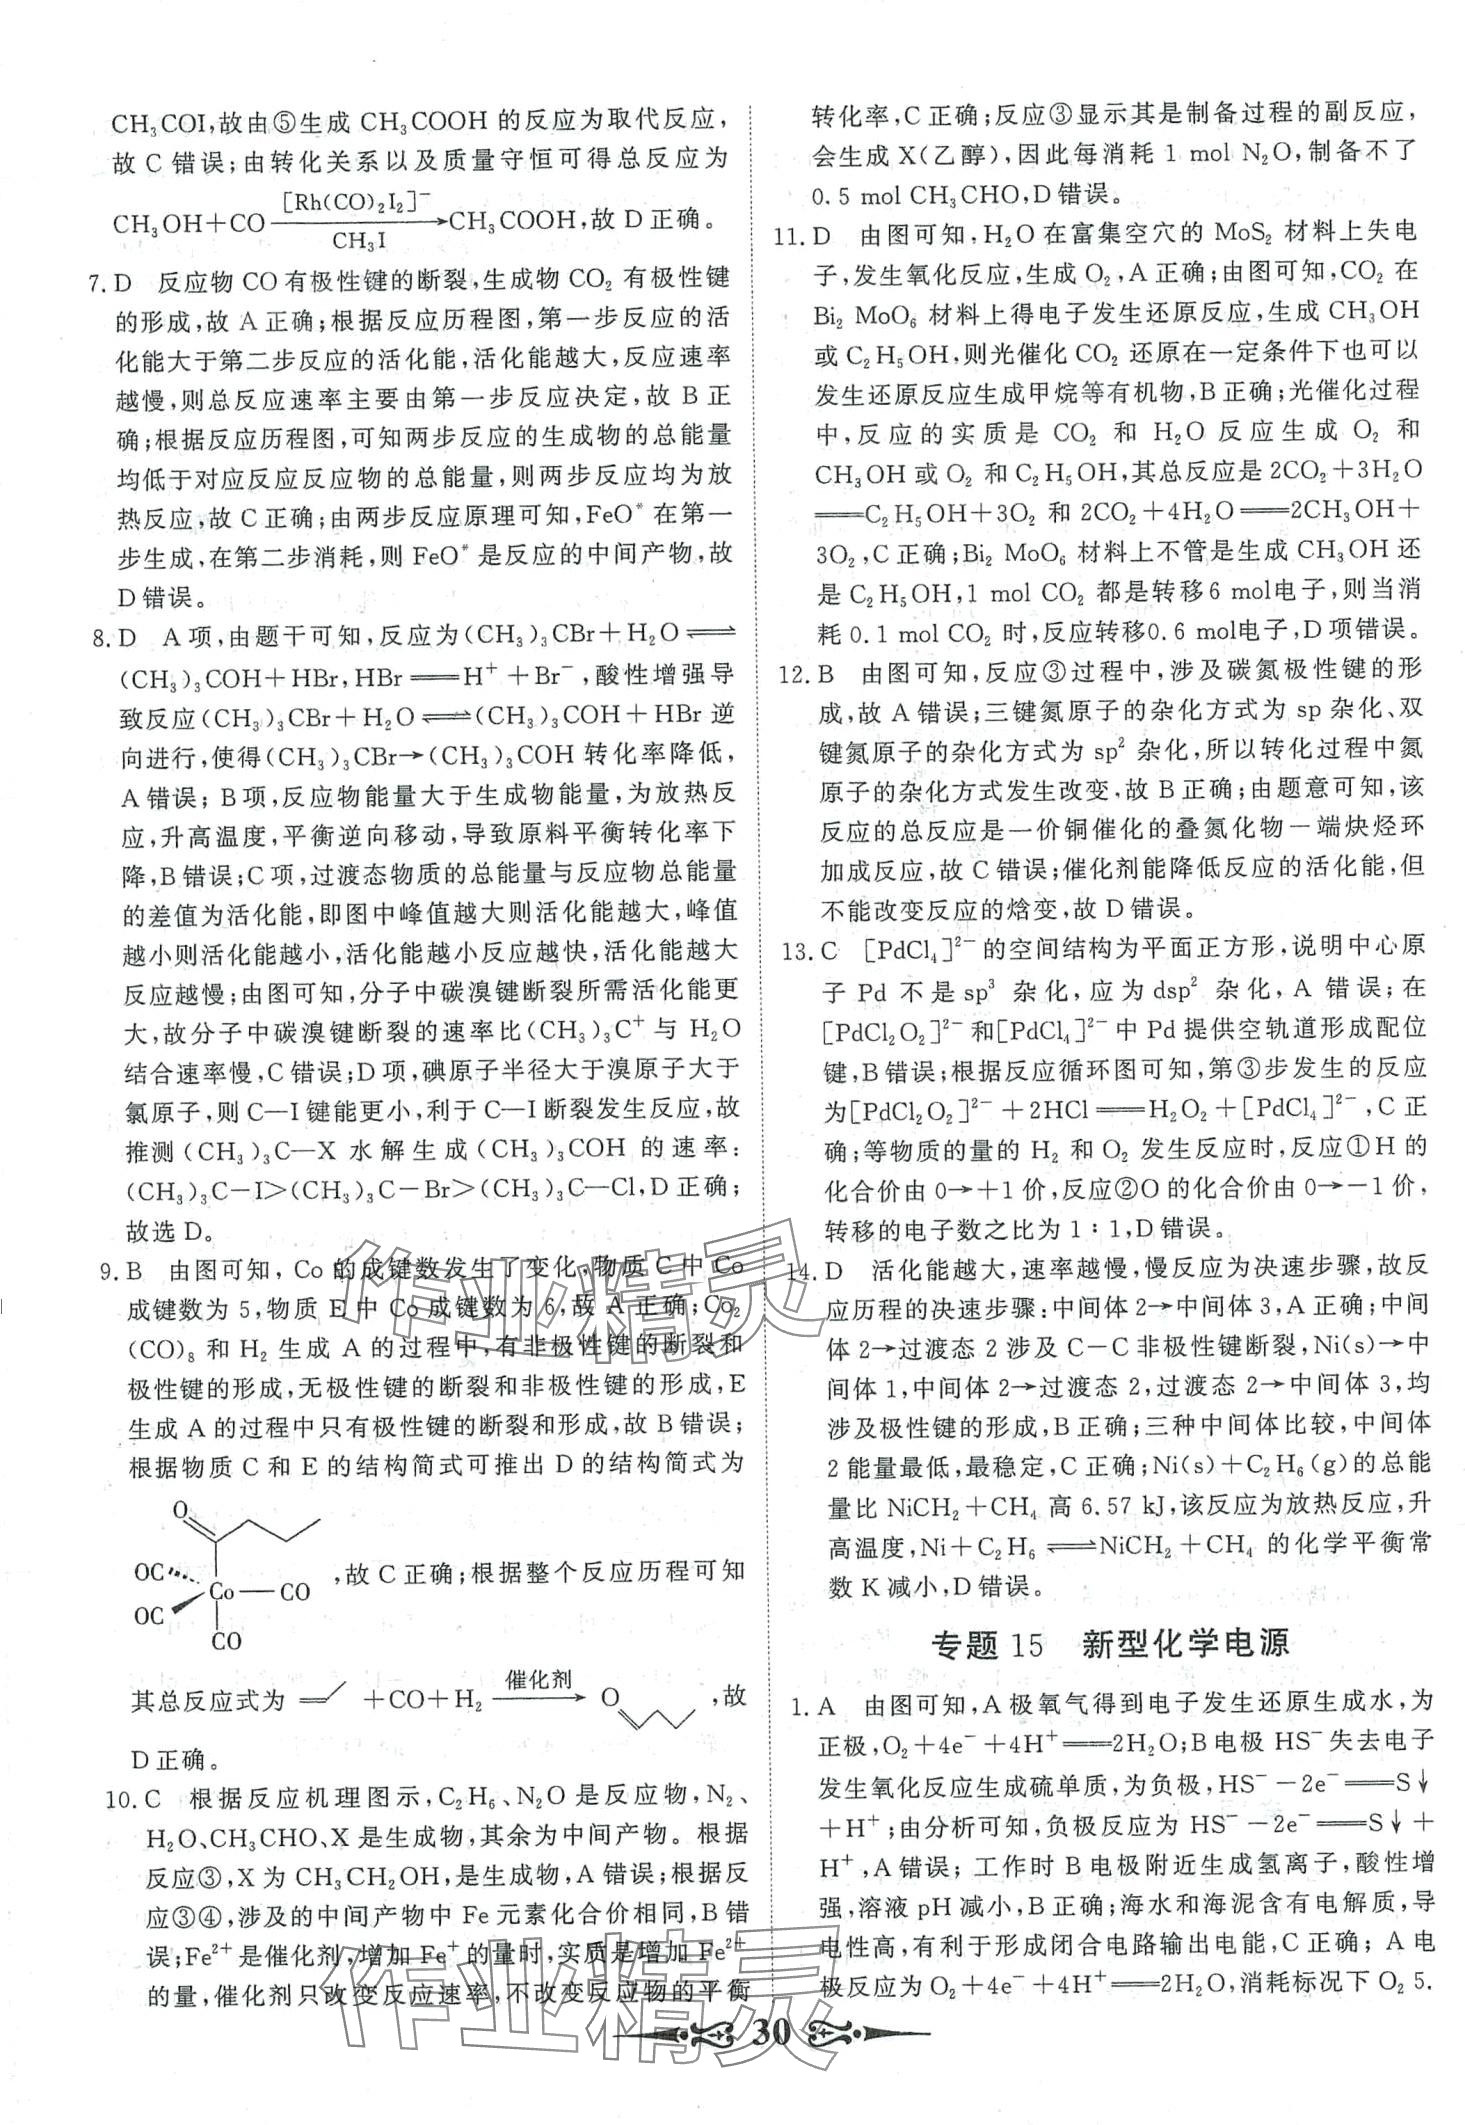 CH₃COI,故由⑤生成 CH₃COOH 的反应为取代反应,
故 C 错误;由转化关系以及质量守恒可得总反应为
[Rh(CO)₂I₂]⁻
CH₃OH+CO————→CH₃COOH,故 D 正确。
CH₃I
7. D 反应物 CO 有极性键的断裂,生成物 CO₂ 有极性键
的形成,故 A 正确;根据反应历程图,第一步反应的活
化能大于第二步反应的活化能,活化能越大,反应速率
越慢,则总反应速率主要由第一步反应决定,故 B 正
确;根据反应历程图,可知两步反应的生成物的总能量
均低于对应反应反应物的总能量,则两步反应均为放
热反应,故 C 正确;由两步反应原理可知,FeO* 在第一
步生成,在第二步消耗,则 FeO* 是反应的中间产物,故
D 错误。
8. D A 项,由题干可知,反应为(CH₃)₃CBr+H₂O⇌
(CH₃)₃COH+HBr,HBr══H⁺+Br⁻,酸性增强导
致反应(CH₃)₃CBr+H₂O⇌(CH₃)₃COH+HBr 逆
向进行,使得(CH₃)₃CBr→(CH₃)₃COH 转化率降低,
A 错误; B 项,反应物能量大于生成物能量,为放热反
应,升高温度,平衡逆向移动,导致原料平衡转化率下
降,B 错误;C 项,过渡态物质的总能量与反应物总能量
的差值为活化能,即图中峰值越大则活化能越大,峰值
越小则活化能越小,活化能越小反应越快,活化能越大
反应越慢;由图可知,分子中碳溴键断裂所需活化能更
大,故分子中碳溴键断裂的速率比(CH₃)₃C⁺ 与 H₂O
结合速率慢,C 错误;D 项,碘原子半径大于溴原子大于
氯原子,则 C—I 键能更小,利于 C—I 断裂发生反应,故
推测(CH₃)₃C—X 水解生成(CH₃)₃COH 的速率:
(CH₃)₃C—I>(CH₃)₃C—Br>(CH₃)₃C—Cl,D 正确;
故选 D。
9. B 由图可知, Co 的成键数发生了变化,物质 C 中 Co
成键数为 5,物质 E 中 Co 成键数为 6,故 A 正确;Co₂
(CO)₈ 和 H₂ 生成 A 的过程中,有非极性键的断裂和
极性键的形成,无极性键的断裂和非极性键的形成,E
生成 A 的过程中只有极性键的断裂和形成,故 B 错误;
根据物质 C 和 E 的结构简式可推出 D 的结构简式为
O
OC Co CO ,故 C 正确;根据整个反应历程可知
OC
CO
催化剂
其总反应式为 +CO+H₂———→O ,故
D 正确。
10. C 根据反应机理图示,C₂H₆、N₂O 是反应物,N₂、
H₂O、CH₃CHO、X 是生成物,其余为中间产物。根据
反应③,X 为 CH₃CH₂OH,是生成物,A 错误;根据反
应③④,涉及的中间产物中 Fe 元素化合价相同,B 错
误;Fe²⁺ 是催化剂,增加 Fe⁺ 的量时,实质是增加 Fe²⁺
的量,催化剂只改变反应速率,不改变反应物的平衡
转化率,C 正确;反应③显示其是制备过程的副反应,
会生成 X(乙醇),因此每消耗 1 mol N₂O,制备不了
0.5 mol CH₃CHO,D 错误。
11. D 由图可知,H₂O 在富集空穴的 MoS₂ 材料上失电
子,发生氧化反应,生成 O₂,A 正确;由图可知,CO₂ 在
Bi₂ MoO₆ 材料上得电子发生还原反应,生成 CH₃OH
或 C₂H₅OH,则光催化 CO₂ 还原在一定条件下也可以
发生还原反应生成甲烷等有机物,B 正确;光催化过程
中,反应的实质是 CO₂ 和 H₂O 反应生成 O₂ 和
CH₃OH 或 O₂ 和 C₂H₅OH,其总反应是 2CO₂+3H₂O
══C₂H₅OH+3O₂ 和 2CO₂+4H₂O══2CH₃OH+
3O₂,C 正确;Bi₂ MoO₆ 材料上不管是生成 CH₃OH 还
是 C₂H₅OH,1 mol CO₂ 都是转移6 mol电子,则当消
耗 0.1 mol CO₂ 时,反应转移0.6 mol电子,D 项错误。
12. B 由图可知,反应③过程中,涉及碳氮极性键的形
成,故 A 错误;三键氮原子的杂化方式为 sp 杂化、双
键氮原子的杂化方式为 sp² 杂化,所以转化过程中氮
原子的杂化方式发生改变,故 B 正确;由题意可知,该
反应的总反应是一价铜催化的叠氮化物－端炔烃环
加成反应,故 C 错误;催化剂能降低反应的活化能,但
不能改变反应的焓变,故 D 错误。
13. C [PdCl₄]²⁻ 的空间结构为平面正方形,说明中心原
子 Pd 不是 sp³ 杂化,应为 dsp² 杂化, A 错误;在
[PdCl₂O₂]²⁻ 和[PdCl₄]²⁻ 中 Pd 提供空轨道形成配位
键,B 错误;根据反应循环图可知,第③步发生的反应
为[PdCl₂O₂]²⁻+2HCl══H₂O₂+[PdCl₄]²⁻,C 正
确;等物质的量的 H₂ 和 O₂ 发生反应时,反应①H 的
化合价由 0→+1 价,反应②O 的化合价由 0→－1 价,
转移的电子数之比为 1∶1,D 错误。
14. D 活化能越大,速率越慢,慢反应为决速步骤,故反
应历程的决速步骤:中间体 2→中间体 3,A 正确;中间
体 2→过渡态 2 涉及 C－C 非极性键断裂,Ni(s)→中
间体 1,中间体 2→过渡态 2,过渡态 2→中间体 3,均
涉及极性键的形成,B 正确;三种中间体比较,中间体
2 能量最低,最稳定,C 正确;Ni(s)+C₂H₆(g)的总能
量比 NiCH₂+CH₄ 高 6.57 kJ,该反应为放热反应,升
高温度,Ni+C₂H₆⇌NiCH₂+CH₄ 的化学平衡常
数 K 减小,D 错误。
专题 15 新型化学电源
1. A 由图可知,A 极氧气得到电子发生还原生成水,为
正极,O₂+4e⁻+4H⁺══2H₂O;B 电极 HS⁻ 失去电子
发生氧化反应生成硫单质,为负极,HS⁻－2e⁻══S↓
+H⁺;由分析可知,负极反应为 HS⁻－2e⁻══S↓+
H⁺,A 错误;工作时 B 电极附近生成氢离子,酸性增
强,溶液 pH 减小,B 正确;海水和海泥含有电解质,导
电性高,有利于形成闭合电路输出电能,C 正确; A 电
极反应为 O₂+4e⁻+4H⁺══2H₂O,消耗标况下 O₂ 5.
30
作业精灵
作业精灵